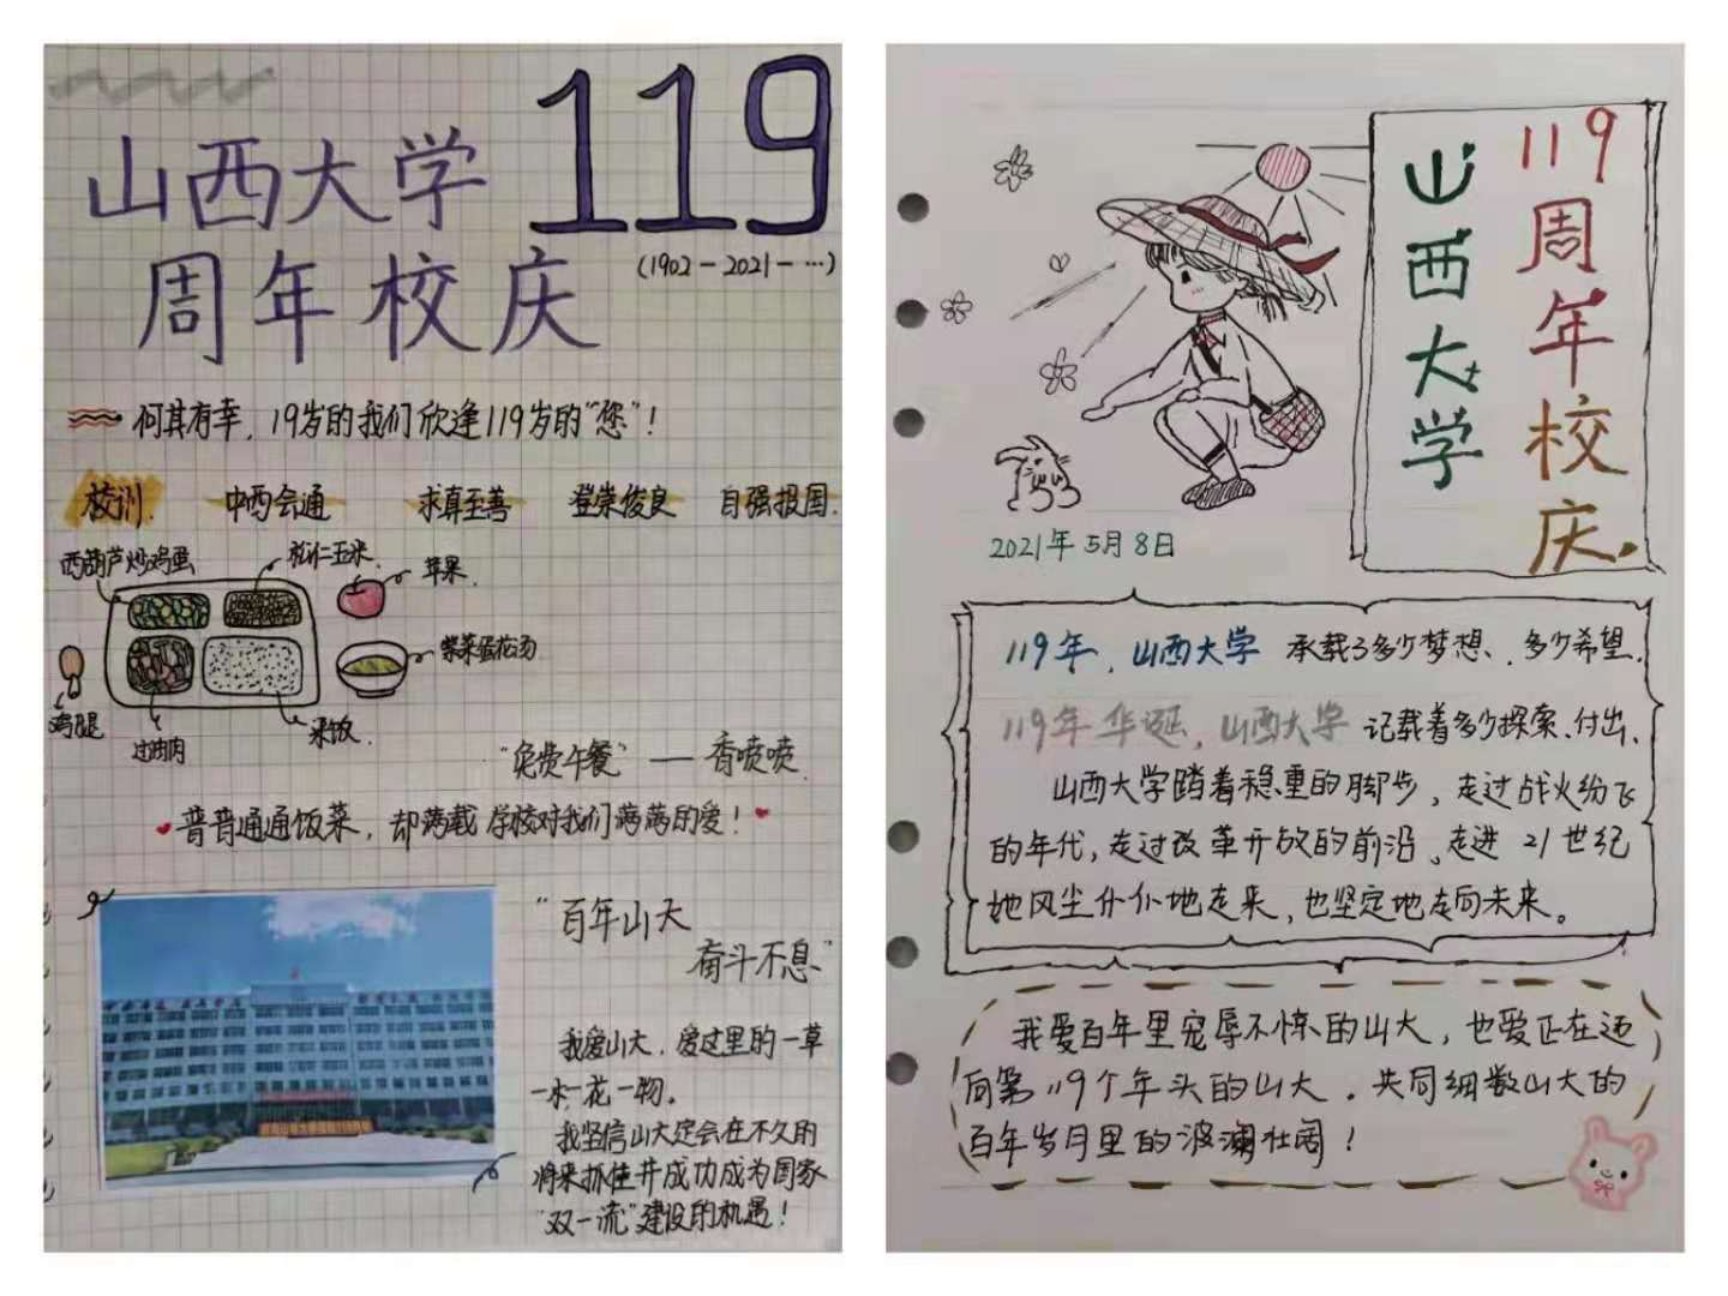 119
山西大学
周年校庆
(1902-2021-…)
何其有幸，19岁的我们欣逢119岁的"您"！
校训 中西会通 求真至善 登崇俊良 自强报国
西葫芦炒鸡蛋
松仁玉米
苹果
紫菜蛋花汤
鸡腿
过油肉
米饭
"免费午餐"——香喷喷
普普通通饭菜，却满载学校对我们满满的爱！
"百年山大
奋斗不息"
我爱山大，爱这里的一草
一木一花一物。
我坚信山大定会在不久的
将来抓住并成功成为国家
"双一流"建设的机遇！
119周年校庆
山西大学
2021年5月8日
119年，山西大学 承载了多少梦想、多少希望.
119年华诞，山西大学 记载着多少探索、付出、
山西大学踏着稳重的脚步，走过战火纷飞
的年代，走过改革开放的前沿、走进 21世纪
她风尘仆仆地走来，也坚定地走向未来。
我爱百年里宠辱不惊的山大，也爱正在迈
向第119个年头的山大。共同细数山大的
百年岁月里的波澜壮阔！